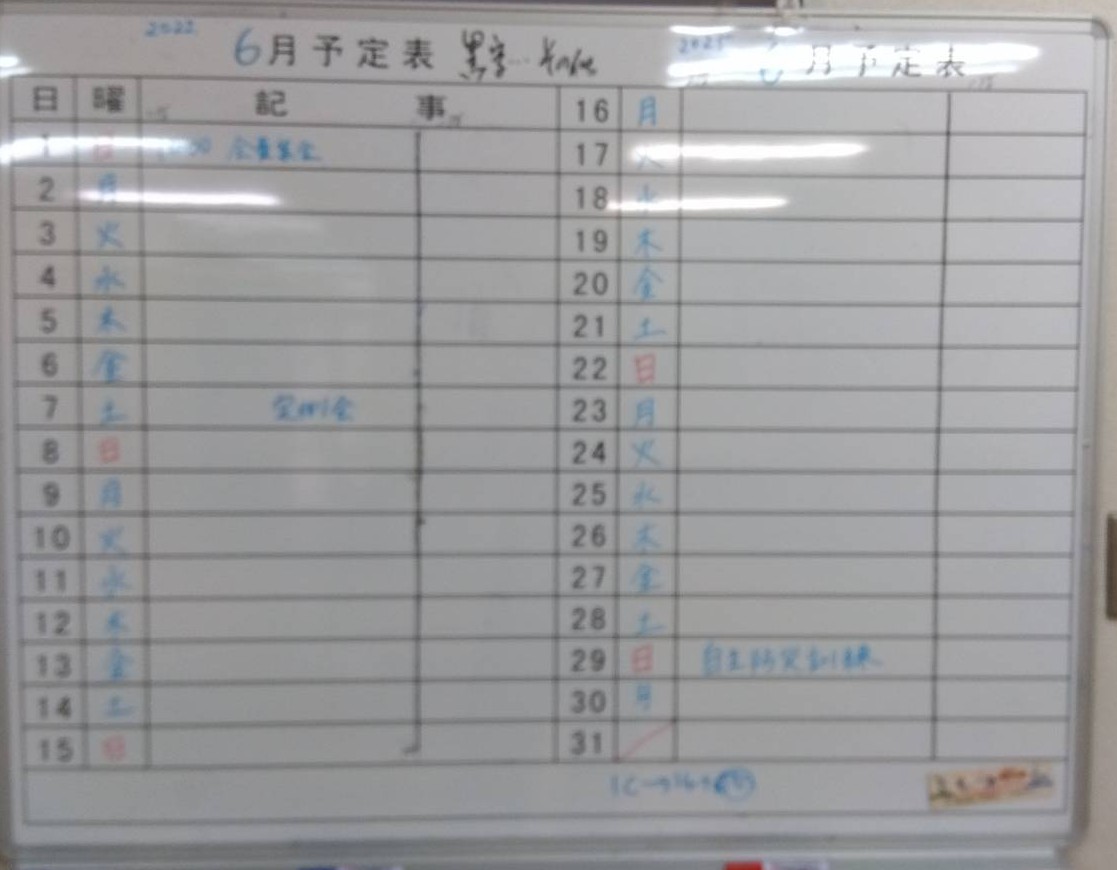 2022 6月予定表 黒字… その他
2025 6月予定表
日 曜 記事
1 日 全員集会
2 月
3 火
4 水
5 木
6 金
7 土 定例会
8 日
9 月
10 火
11 水
12 木
13 金
14 土
15 日
16 月
17 火
18 水
19 木
20 金
21 土
22 日
23 月
24 火
25 水
26 木
27 金
28 土
29 日 自主防災訓練
30 月
31